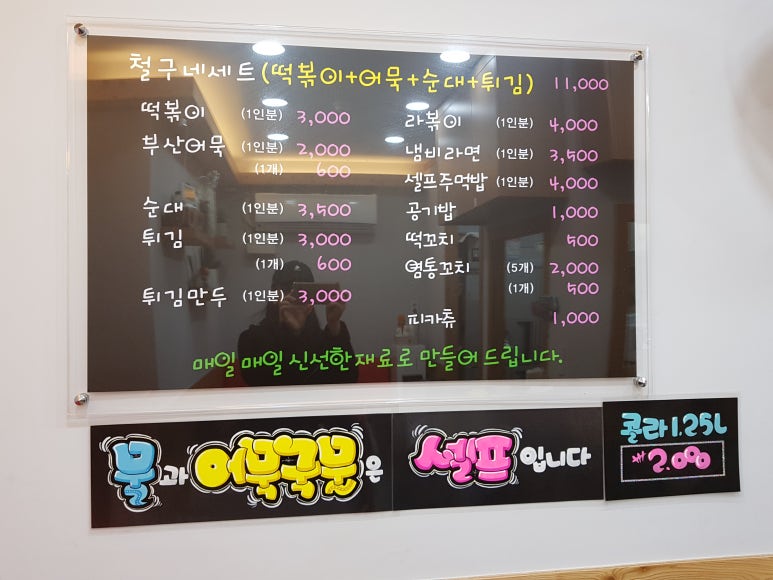 철구네세트(떡볶이+어묵+순대+튀김) 11,000
떡볶이 (1인분) 3,000
부산어묵 (1인분) 2,000
(1개) 600
순대 (1인분) 3,500
튀김 (1인분) 3,000
(1개) 600
튀김만두 (1인분) 3,000
라볶이 (1인분) 4,000
냄비라면 (1인분) 3,500
셀프주먹밥 (1인분) 4,000
공기밥 1,000
떡꼬치 500
염통꼬치 (5개) 2,000
(1개) 500
피카츄 1,000
매일 매일 신선한 재료로 만들어 드립니다.
물과 어묵국물은 셀프입니다
콜라 1.25L
2,000